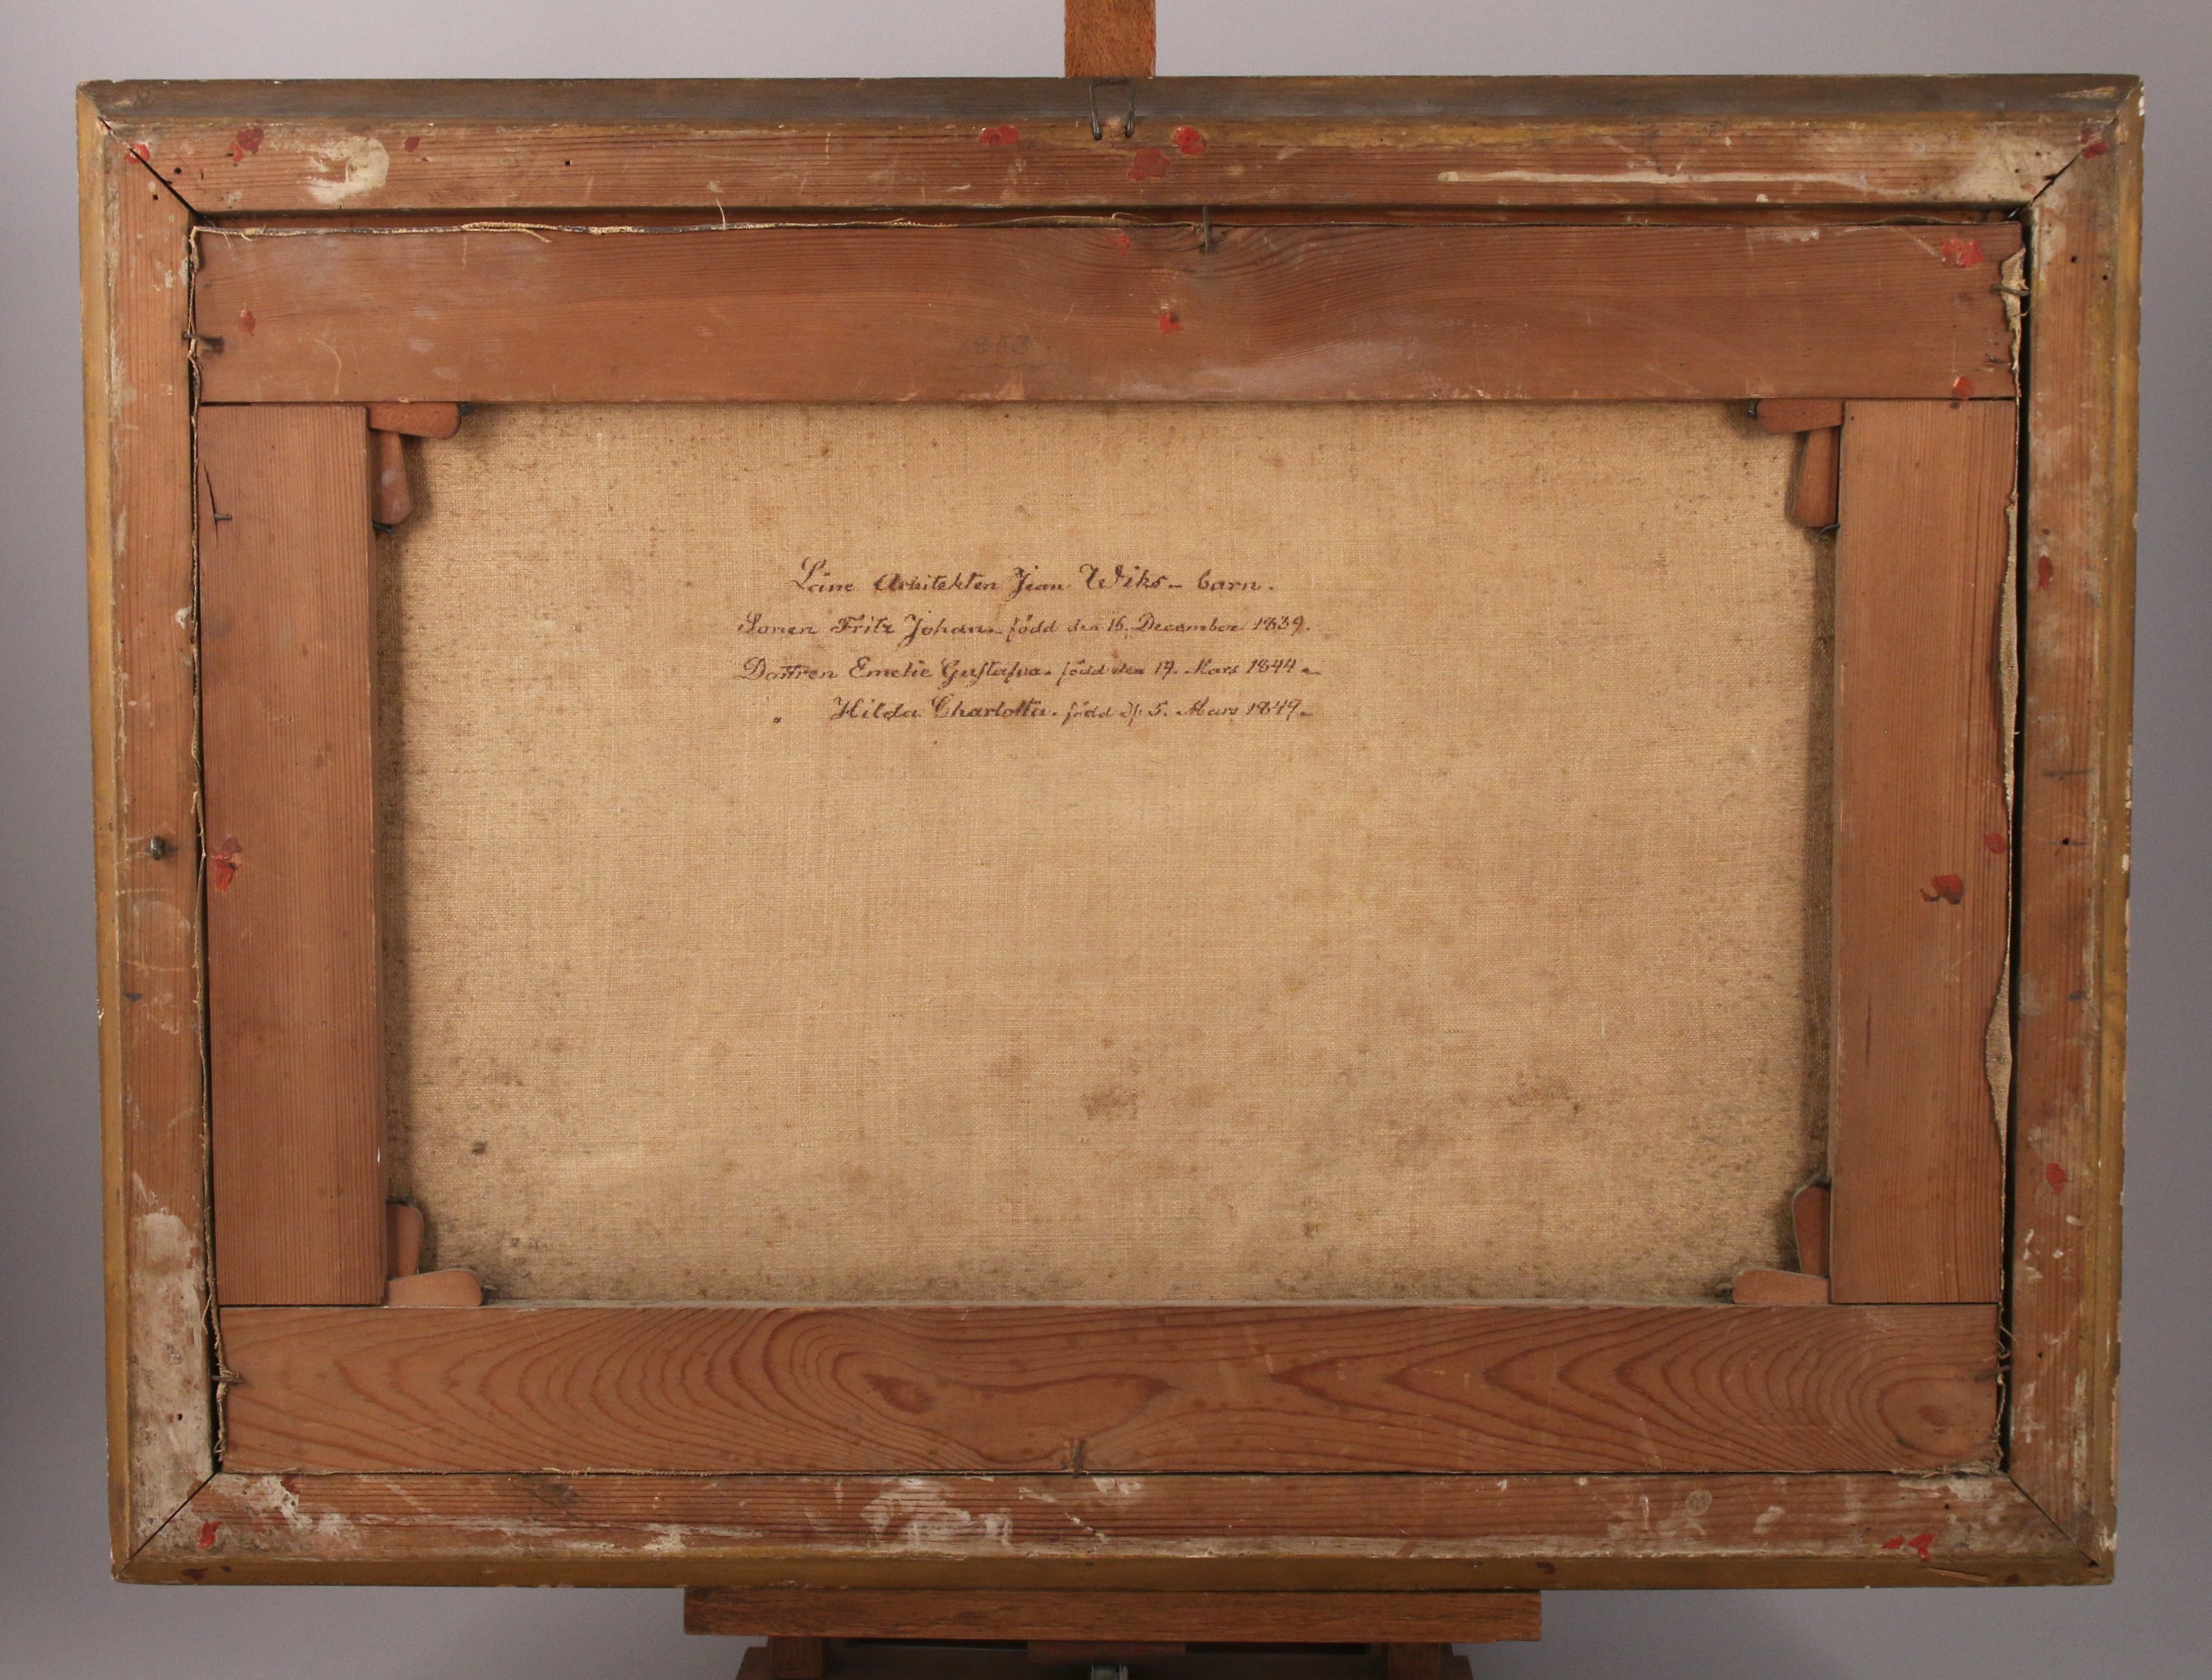 1853
Läns Arkitekten Jean Wiks- barn.
Sonen Fritz Johan. född den 16. December 1839.
Dottren Emelie Gustafva. född den 17. Mars 1844-
" Hilda Charlotta. född d. 5. Mars 1849-